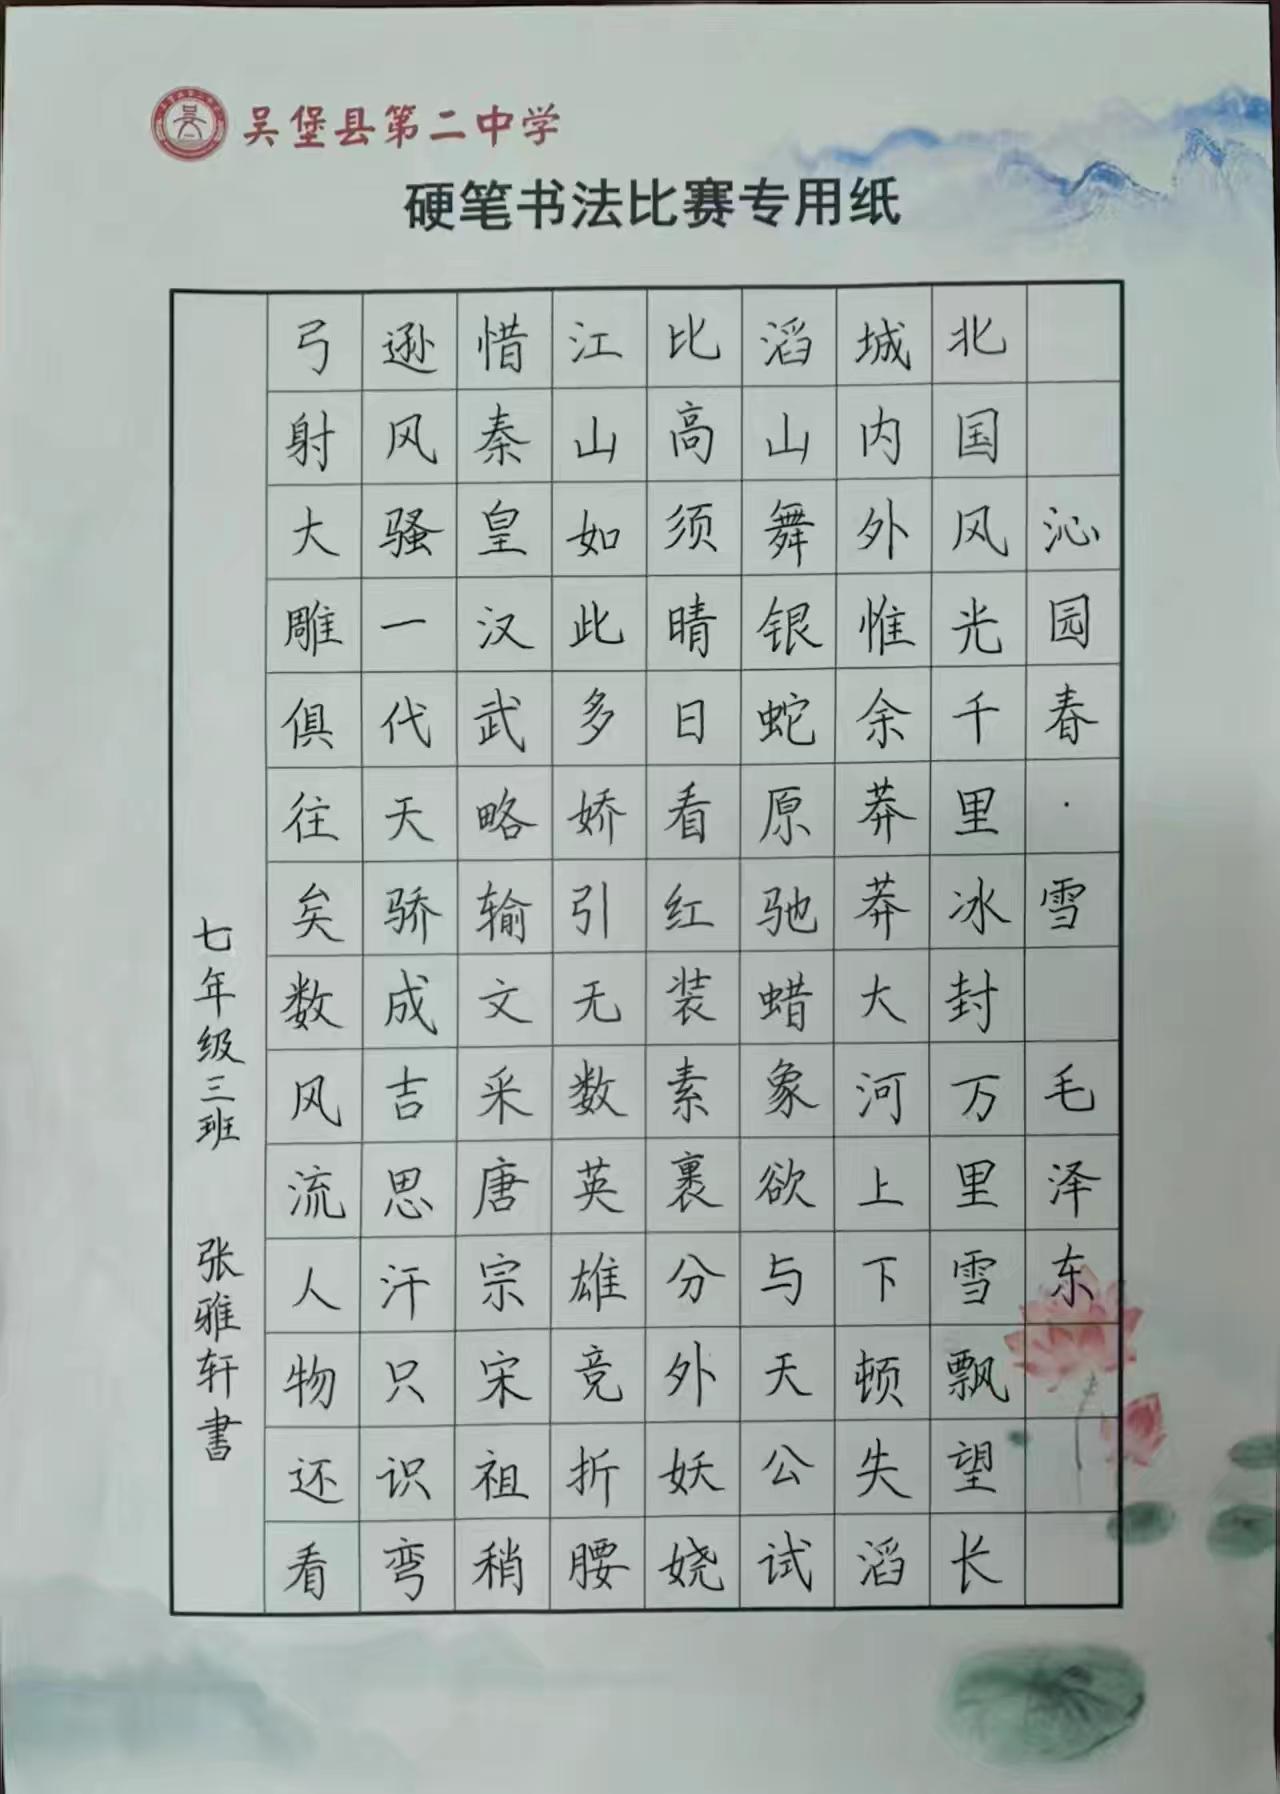 吴堡县第二中学
硬笔书法比赛专用纸
沁园春·雪 毛泽东
北国风光千里冰封万里雪飘望长
城内外惟余莽莽大河上下顿失滔
滔山舞银蛇原驰蜡象欲与天公试
比高须晴日看红装素裹分外妖娆
江山如此多娇引无数英雄竞折腰
惜秦皇汉武略输文采唐宗宋祖稍
逊风骚一代天骄成吉思汗只识弯
弓射大雕俱往矣数风流人物还看
七年级三班 张雅轩書